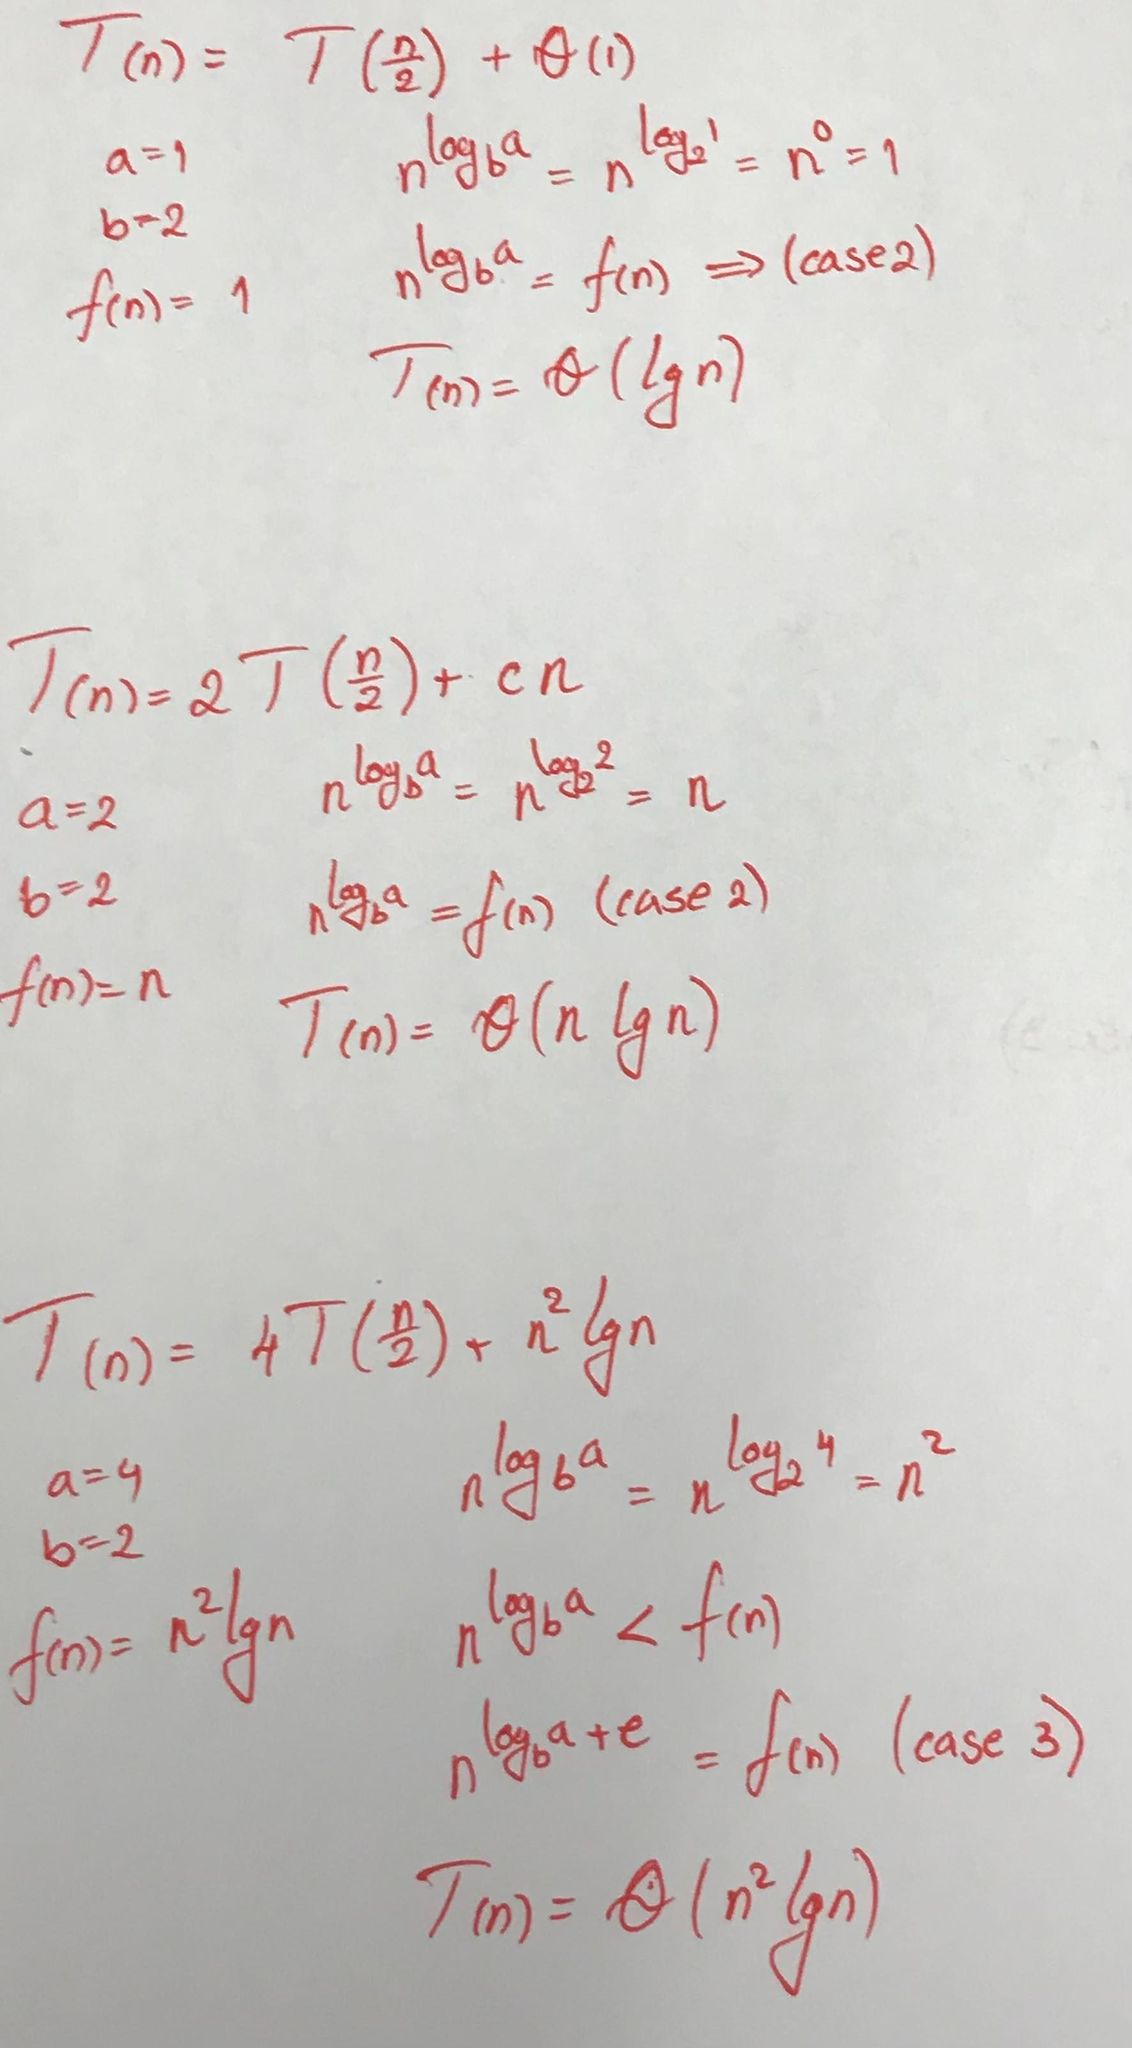 T(n) = T(n/2) + θ(1)
a=1 n^log_b a = n^log_2 1 = n^0 = 1
b=2
n^log_b a = f(n) ⇒ (case 2)
f(n) = 1
T(n) = θ(lg n)
T(n) = 2T(n/2) + cn
a=2 n^log_b a = n^log_2 2 = n
b=2 n^log_b a = f(n) (case 2)
f(n) = n T(n) = θ(n lg n)
T(n) = 4T(n/2) + n^2 lg n
a=4 n^log_b a = n^log_2 4 = n^2
b=2
f(n) = n^2 lg n n^log_b a < f(n)
n^log_b a+e = f(n) (case 3)
T(n) = θ(n^2 lg n)